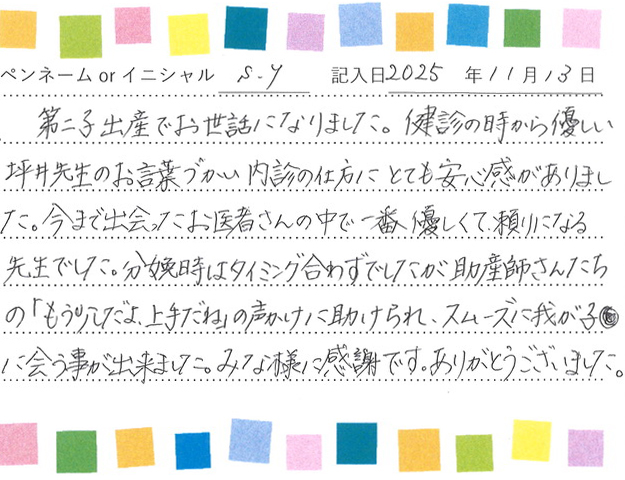 ペンネーム or イニシャル S.Y 記入日 2025 年 11 月 13 日
第二子出産でお世話になりました。健診の時から優しい
坪井先生のお言葉づかい内診の仕方にとても安心感がありまし
た。今まで出会ったお医者さんの中で一番優しくて頼りになる
先生でした。分娩時はタイミング合わずでしたが助産師さんたち
の「もう少しだよ、上手だね」の声かけに助けられ、スムーズに我が子
に会う事が出来ました。みな様に感謝です。ありがとうございました。